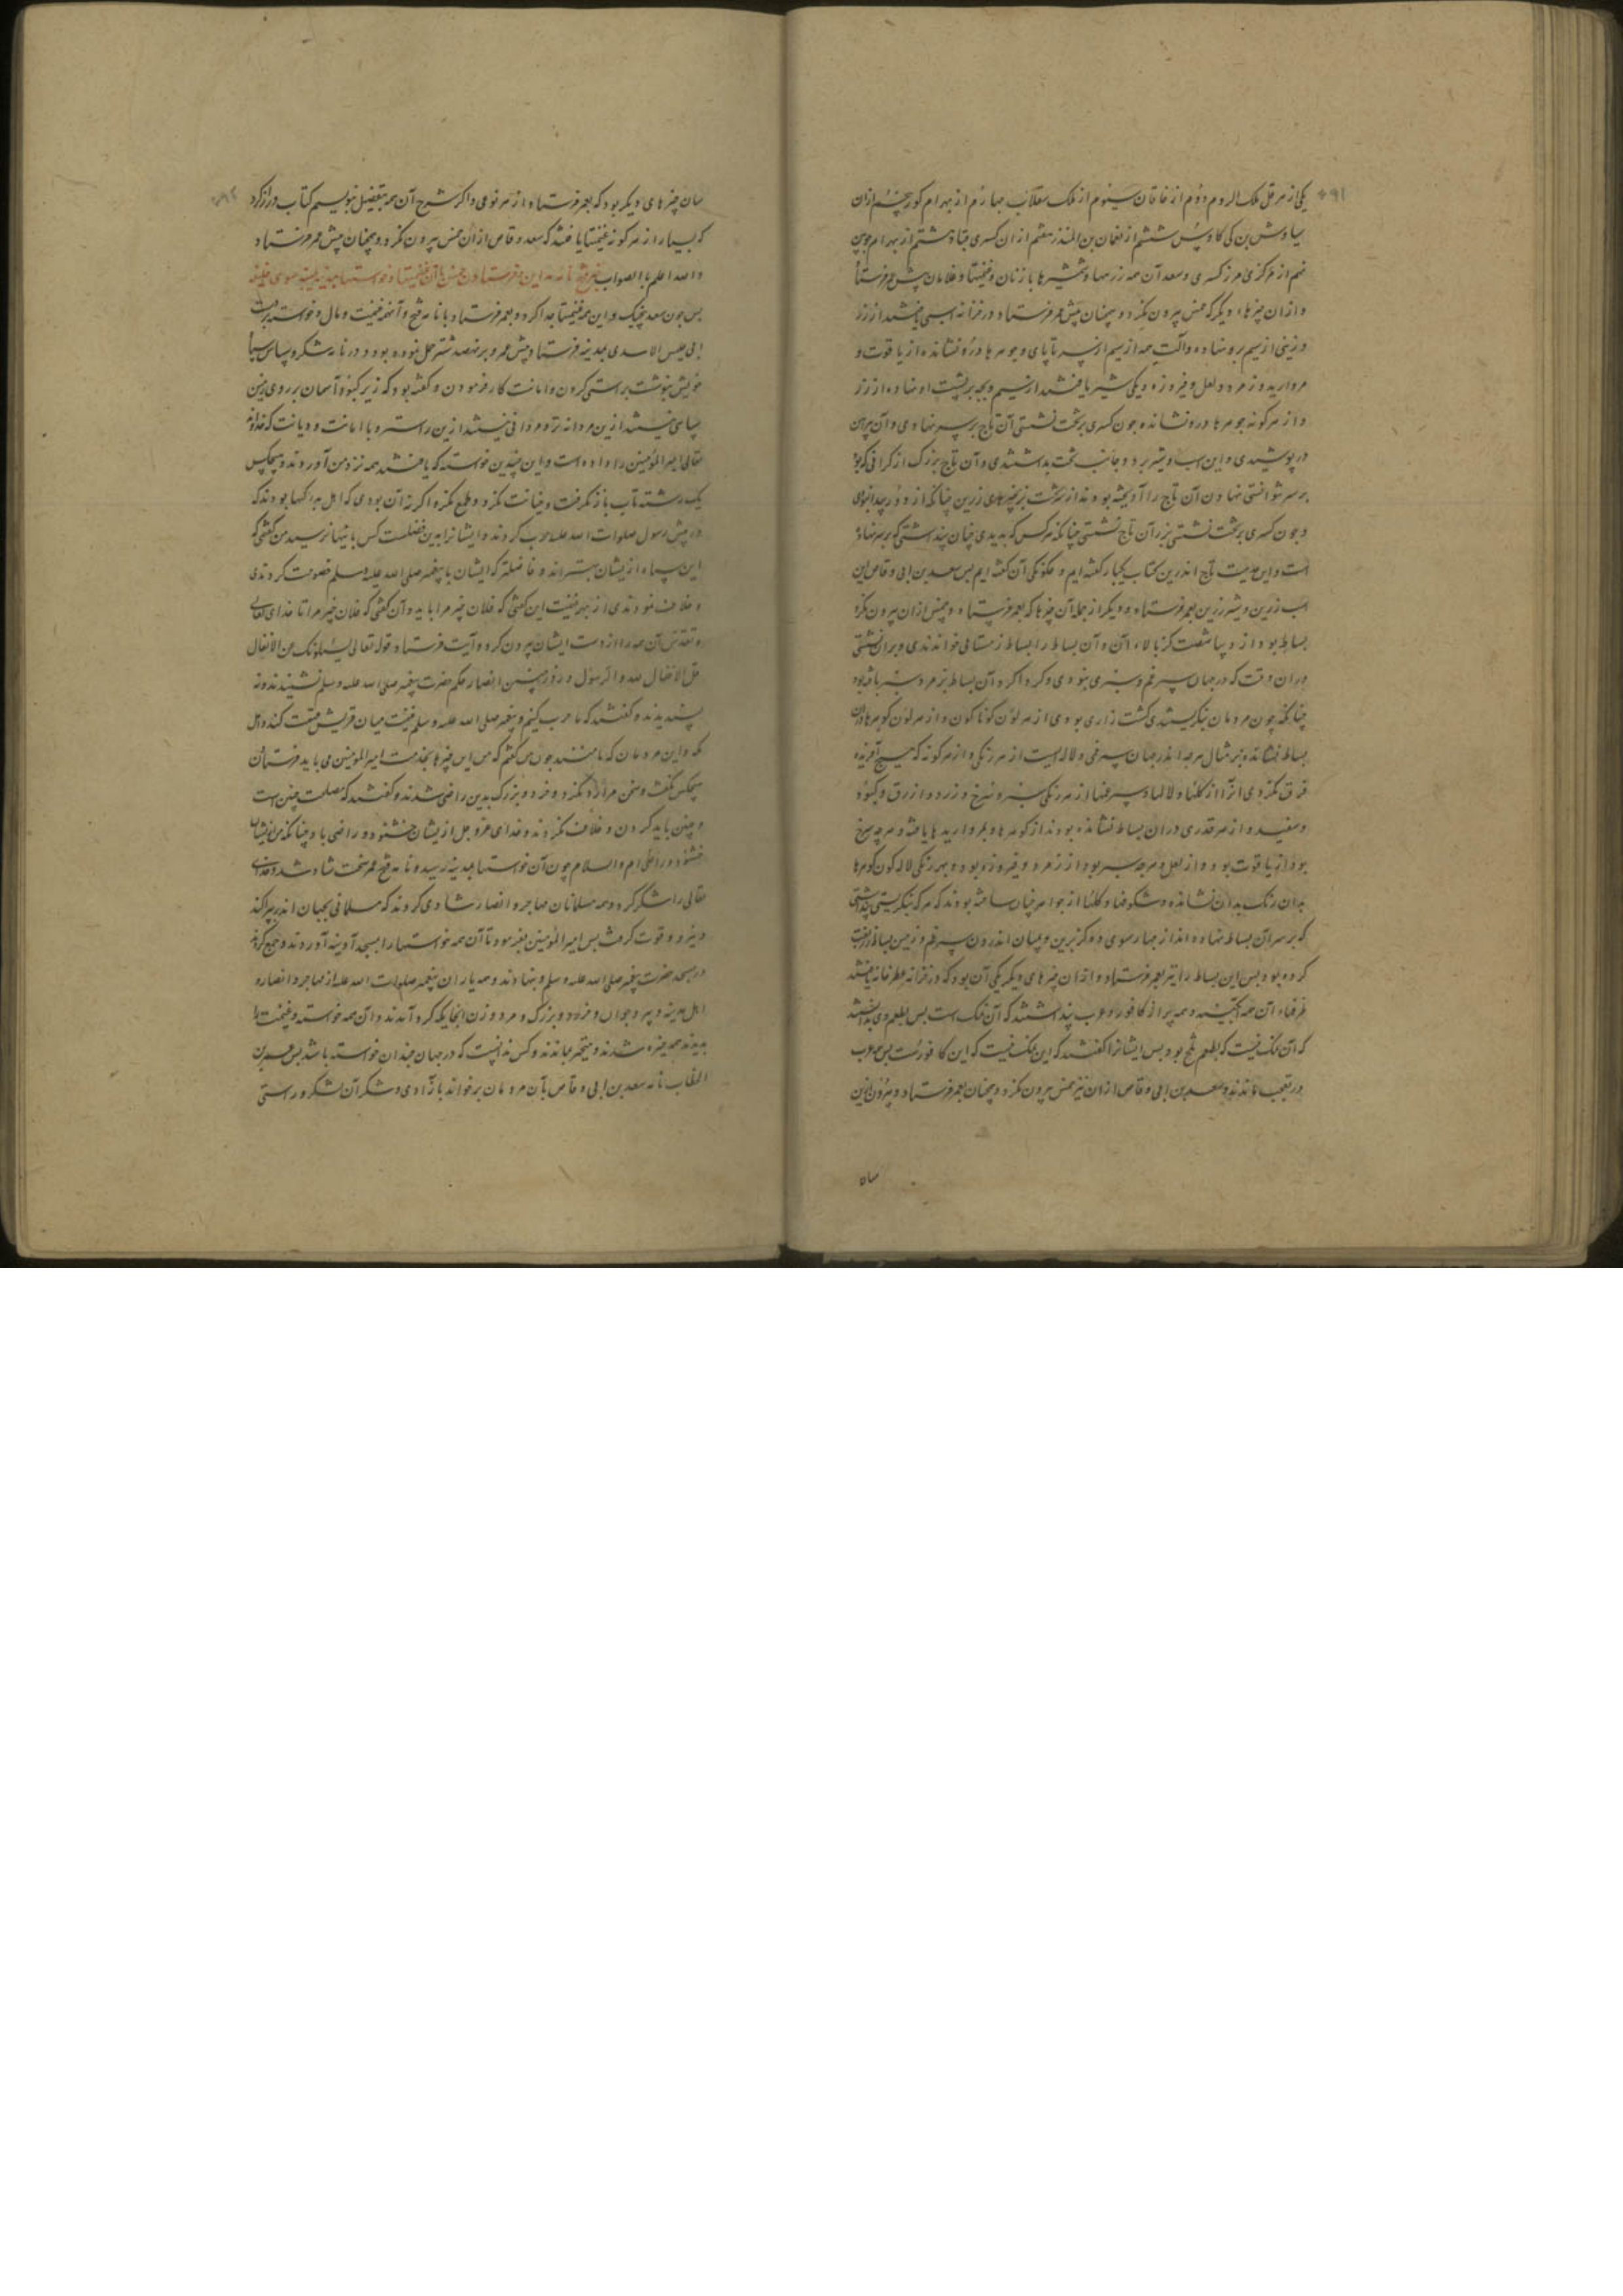 یکی از هرقل ملک الروم دوُم از خاقان سیوم از ملک سقلاب چهارم از بهرام کور پنچم ازان
سیاوش بن کی کاوس ششم از نعمان بن المنذر هفتم ازان کسری قباد هشتم از بهرام چوبین
نهم از هرکزی هرز کسری و سعد آن همه زرهها و شمشیرها با زنان و غنیمتها و غلامان پیش عمر فرستاد
و ازان چیزها دیگر که خمس بیرون نکرد و همچنان پیش عمر فرستاد و در خزانه اسبی یافتند از زر
و زینی از سیم برو نهاده و آلت همه از سیم از سر تا پای و جوهرها درو نشانده از یاقوت و
مروارید و زمرد و لعل و فیروزه و یکی شیر یافتند از سیم و بچه بر پشت او نهاده از زر
و از هر کونه جوهرها درو نشانده چون کسری بر تخت نشستی آن تاج بر سر نهادی و آن پیراهن
در پوشیدی و این اسب و شیر بر دو جانب تخت بداشتندی و آن تاج بزرک از کرانی که بود
بر سر نتوانستی نهادن آن تاج را آویخته بودند از سرتخت بزنجیرهای زرین چنانکه از دور پیدا نبودی
و چون کسری بر تخت نشستی بزیر آن تاج نشستی چنانکه هر کس که بدیدی چنان پنداشتی که بر سر نهاده
است و این حدیث تاج اندرین کتاب یکبار کفته ایم و چکونکی آن کفته ایم پس سعد بن ابی وقاص این
اسب زرین و شیر زرین بعمر فرستاد و دیکر از جمله آن چیزها که بعمر فرستاد و خمس ازان بیرون نکرد
بساط بود از دیبا شصت کز بالاء آن و آن بساط را بساط زمستانی خواندندی و بران نشستی
دران وقت که در جهان سپرغم و سبزی نبودی و کرداکرد آن بساط بزمرد سبز بافته بود
چنانکه چون مردمان بنکریستندی کشت زاری بودی از هر لون کوناکون و از هر لون کوهرها دران
بساط نشانده بر مثال هرچه اندر جهان سپرغمی و لاله است از هر رنکی و از هر کونه که هیچ آفریده
فرق نکردی آنرا از کلها و لالها و سپرغمها از هر رنکی سبز و سرخ و زرد و ازرق و کبود
و سفید و از هر قدری دران بساط نشانده بودند از کوهرها و بمرواریدها بافته و هرچه سرخ
بود از یاقوت بود و از لعل و هرچه سبز بود از زمرد و فیروزه بود و بهر رنکی لاله کون کوهرها
بدان رنک بدان نشانده و شکوفها و کلها از جواهر چنان ساخته بودند که هر که بنکریستی پنداشتی
که بر سر آن بساط نهاده اند از چهار سوی ده کز برین و میان اندرون سپرغم و زمین بساط زربفت
کرده بود پس این بساط را نیز بعمر فرستاد و ازان چیزهای دیکر یکی آن بود که در خزانه عطرخانه یافتند
ظرفهاء آن همه آبکینه و همه پر از کافور و عرب پنداشتند که آن نمک است پس بطعم وی بدانستند
که آن نمک نیست که بطعم تلخ بود پس ایشانرا کفتند که این نمک نیست که این کافورست پس همه عرب
در تعجب ماندند و سعد بن ابی وقاص ازان نیز خمس بیرون نکرد و همچنان بعمر فرستاد و بیرون ازین
سان
سان چیزهای دیکر بود که بعمر فرستاد از هر نوعی و اکر شرح آن همه بتفصیل بنویسم کتاب دراز کردد
که بسیار از هر کونه غنیمتها یافتند که سعد وقاص ازان خمس بیرون نکرد و همچنان پیش عمر فرستاد
و الله اعلم بالصواب خبر فتح نامه مداین و فرستادن خمس با آن غنیمتها و خواستها بمدینه سوی خلیفه
پس چون سعد این همه غنیمتها جدا کرد و بعمر فرستاد با نامه فتح و آنهمه غنیمت و مال و خواسته بدست
ابی حلیس الاسدی بمدینه فرستاد پیش عمر و بر نهصد شتر حمل نموده بود و در نامه شکر و سپاس سپاه
خویش نبوشت براستی کردن و امانت کار فرمودن و کفته بود که زیر کبود آسمان بر روی زمین
سپاهی نیستند ازین مردانه تر و مردانی نیستند ازین راست رو با امانت و دیانت که خدای
تعالی امیر المومنین را داده است و این چندین خواسته که یافتند همه نزد من آوردند و هیچکس
یک رشته تاب باز نکرفت و خیانت نکرد و طمع نکرد و اکر نه آن بودی که اهل بدر کسها بودند که
در پیش رسول صلوات الله علیه حرب کردند و ایشانرا بدین فضلست کس باینها نرسید من کفتمی که
این سپاه از یشان بهتر اند و فاضلتر که ایشان با پیغمبر صلی الله علیه و سلم خصومت کردندی
و خلاف نمودندی از بهر غنیمت این کفتی که فلان چیز مرا باید و آن کفتی که فلان چیز مرا تا خدای تعالی
و تقدس آن همه را از دست ایشان بیرون کرد و آیت فرستاد قوله تعالی یسئلونک عن الانفال
قل الانفال لله و الرسول و روز حنین انصار حکم حضرت پیغمبر صلی الله علیه و سلم نشنیدند و نه
پسندیدند و کفتند که ما حرب کنیم و پیغمبر صلی الله علیه و سلم غنیمت میان قریش قسمت کند و اهل
مکه و این مردمان که با منند چون من کفتم که من این چیزها بخدمت امیر المومنین می باید فرستادن
هیچکس نکفت و سخن مرا رد نکرد و خرد و بزرک بدین راضی شدند و کفتند که مصلحت چنین است
و چنین باید کردن و خلاف نکردند و خدای عز و جل از یشان خشنود و راضی باد چنانکه من از یشان
خشنود و راضی ام و السلام چون آن خواستها بمدینه رسید و نامه فتح عمر سخت شاد شد و خدای
تعالی را شکر کرد و همه مسلمانان مهاجر و انصار شادی کردند که مسلمانی بجهان اندر پراکند
و نیرو و قوت کرفت پس امیر المومنین بفرمود تا آن همه خواستها را بمسجد آدینه آوردند و جمع کردند
در مسجد حضرت پیغمبر صلی الله علیه و سلم و بنهادند و همه یاران پیغمبر صلوات الله علیه از مهاجر و انصار و
اهل مدینه و پیر و جوان و خرد و بزرک و مرد و زن آنجایکه کرد آمدند و آن همه خواسته و غنیمت را
بدیدند همه خیره شدند و متحیر بماندند و کس ندانست که در جهان چندان خواسته باشد پس عمر بن
الخطاب نامه سعد بن ابی وقاص بآن مردمان بر خواند بآزادی و شکر آن لشکر و راستی